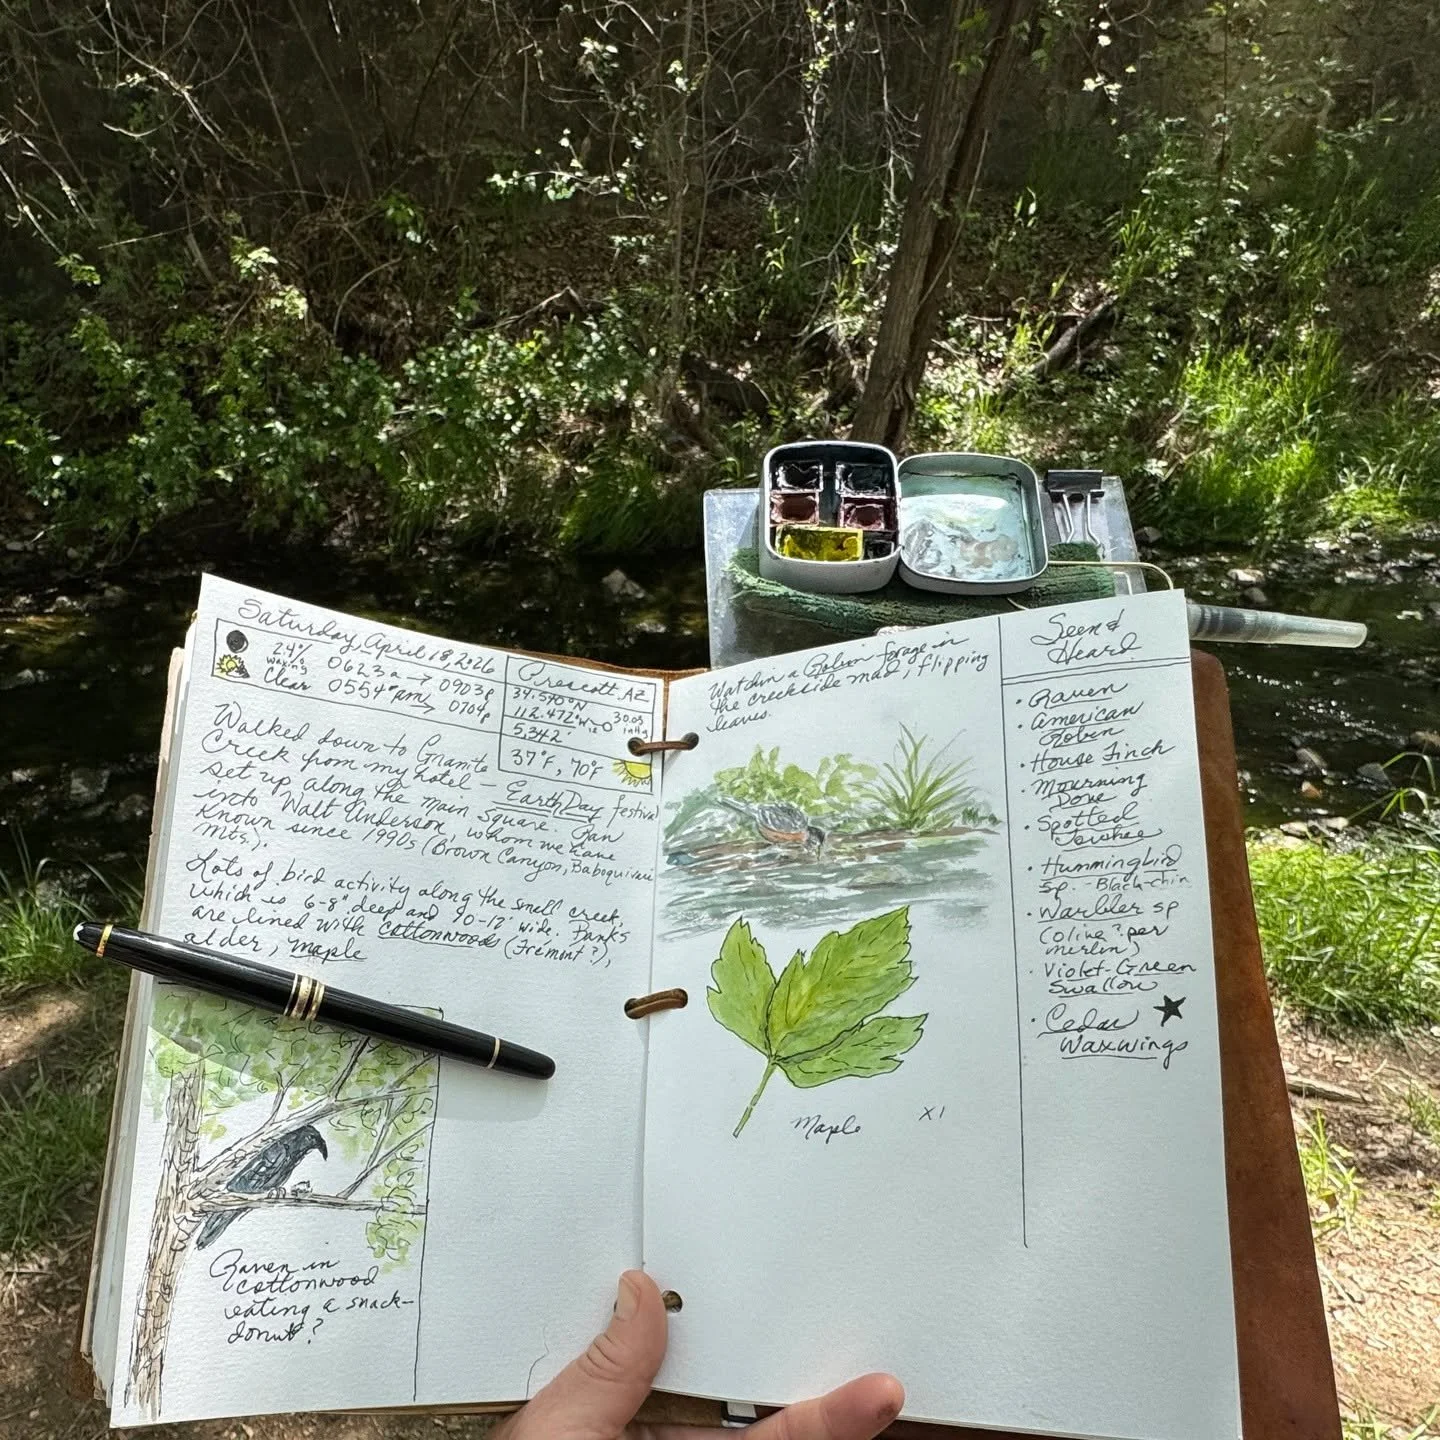 Saturday, April 18, 2026
2.4%
waxing
Clear
0623a → 0903p
0554am → 0704p
Prescott, AZ
34.540°N
112.472°W
30.03
inHg
5,342'
37°F, 70°F
Walked down to Granite
Creek from my hotel - Earth Day festival
set up along the main square. Ran
into Walt Anderson, whom we have
known since 1990s (Brown Canyon, Baboquivari
Mts.).
Lots of bird activity along the small creek,
which is 6-8" deep and 10-12' wide. Banks
are lined with cottonwoods (Fremont?),
alder, maple
Raven in
cottonwood
eating a snack-
donut?
Watchin a Robin forage in
the creekside mud, flipping
leaves.
Maple
X1
Seen &
Heard
• Raven
• American
Robin
• House Finch
• Mourning
Dove
• Spotted
Towhee
• Hummingbird
sp. - Black-chin
• Warbler sp
(olive? per
merlin)
• Violet-Green
Swallow
• Cedar
Waxwings